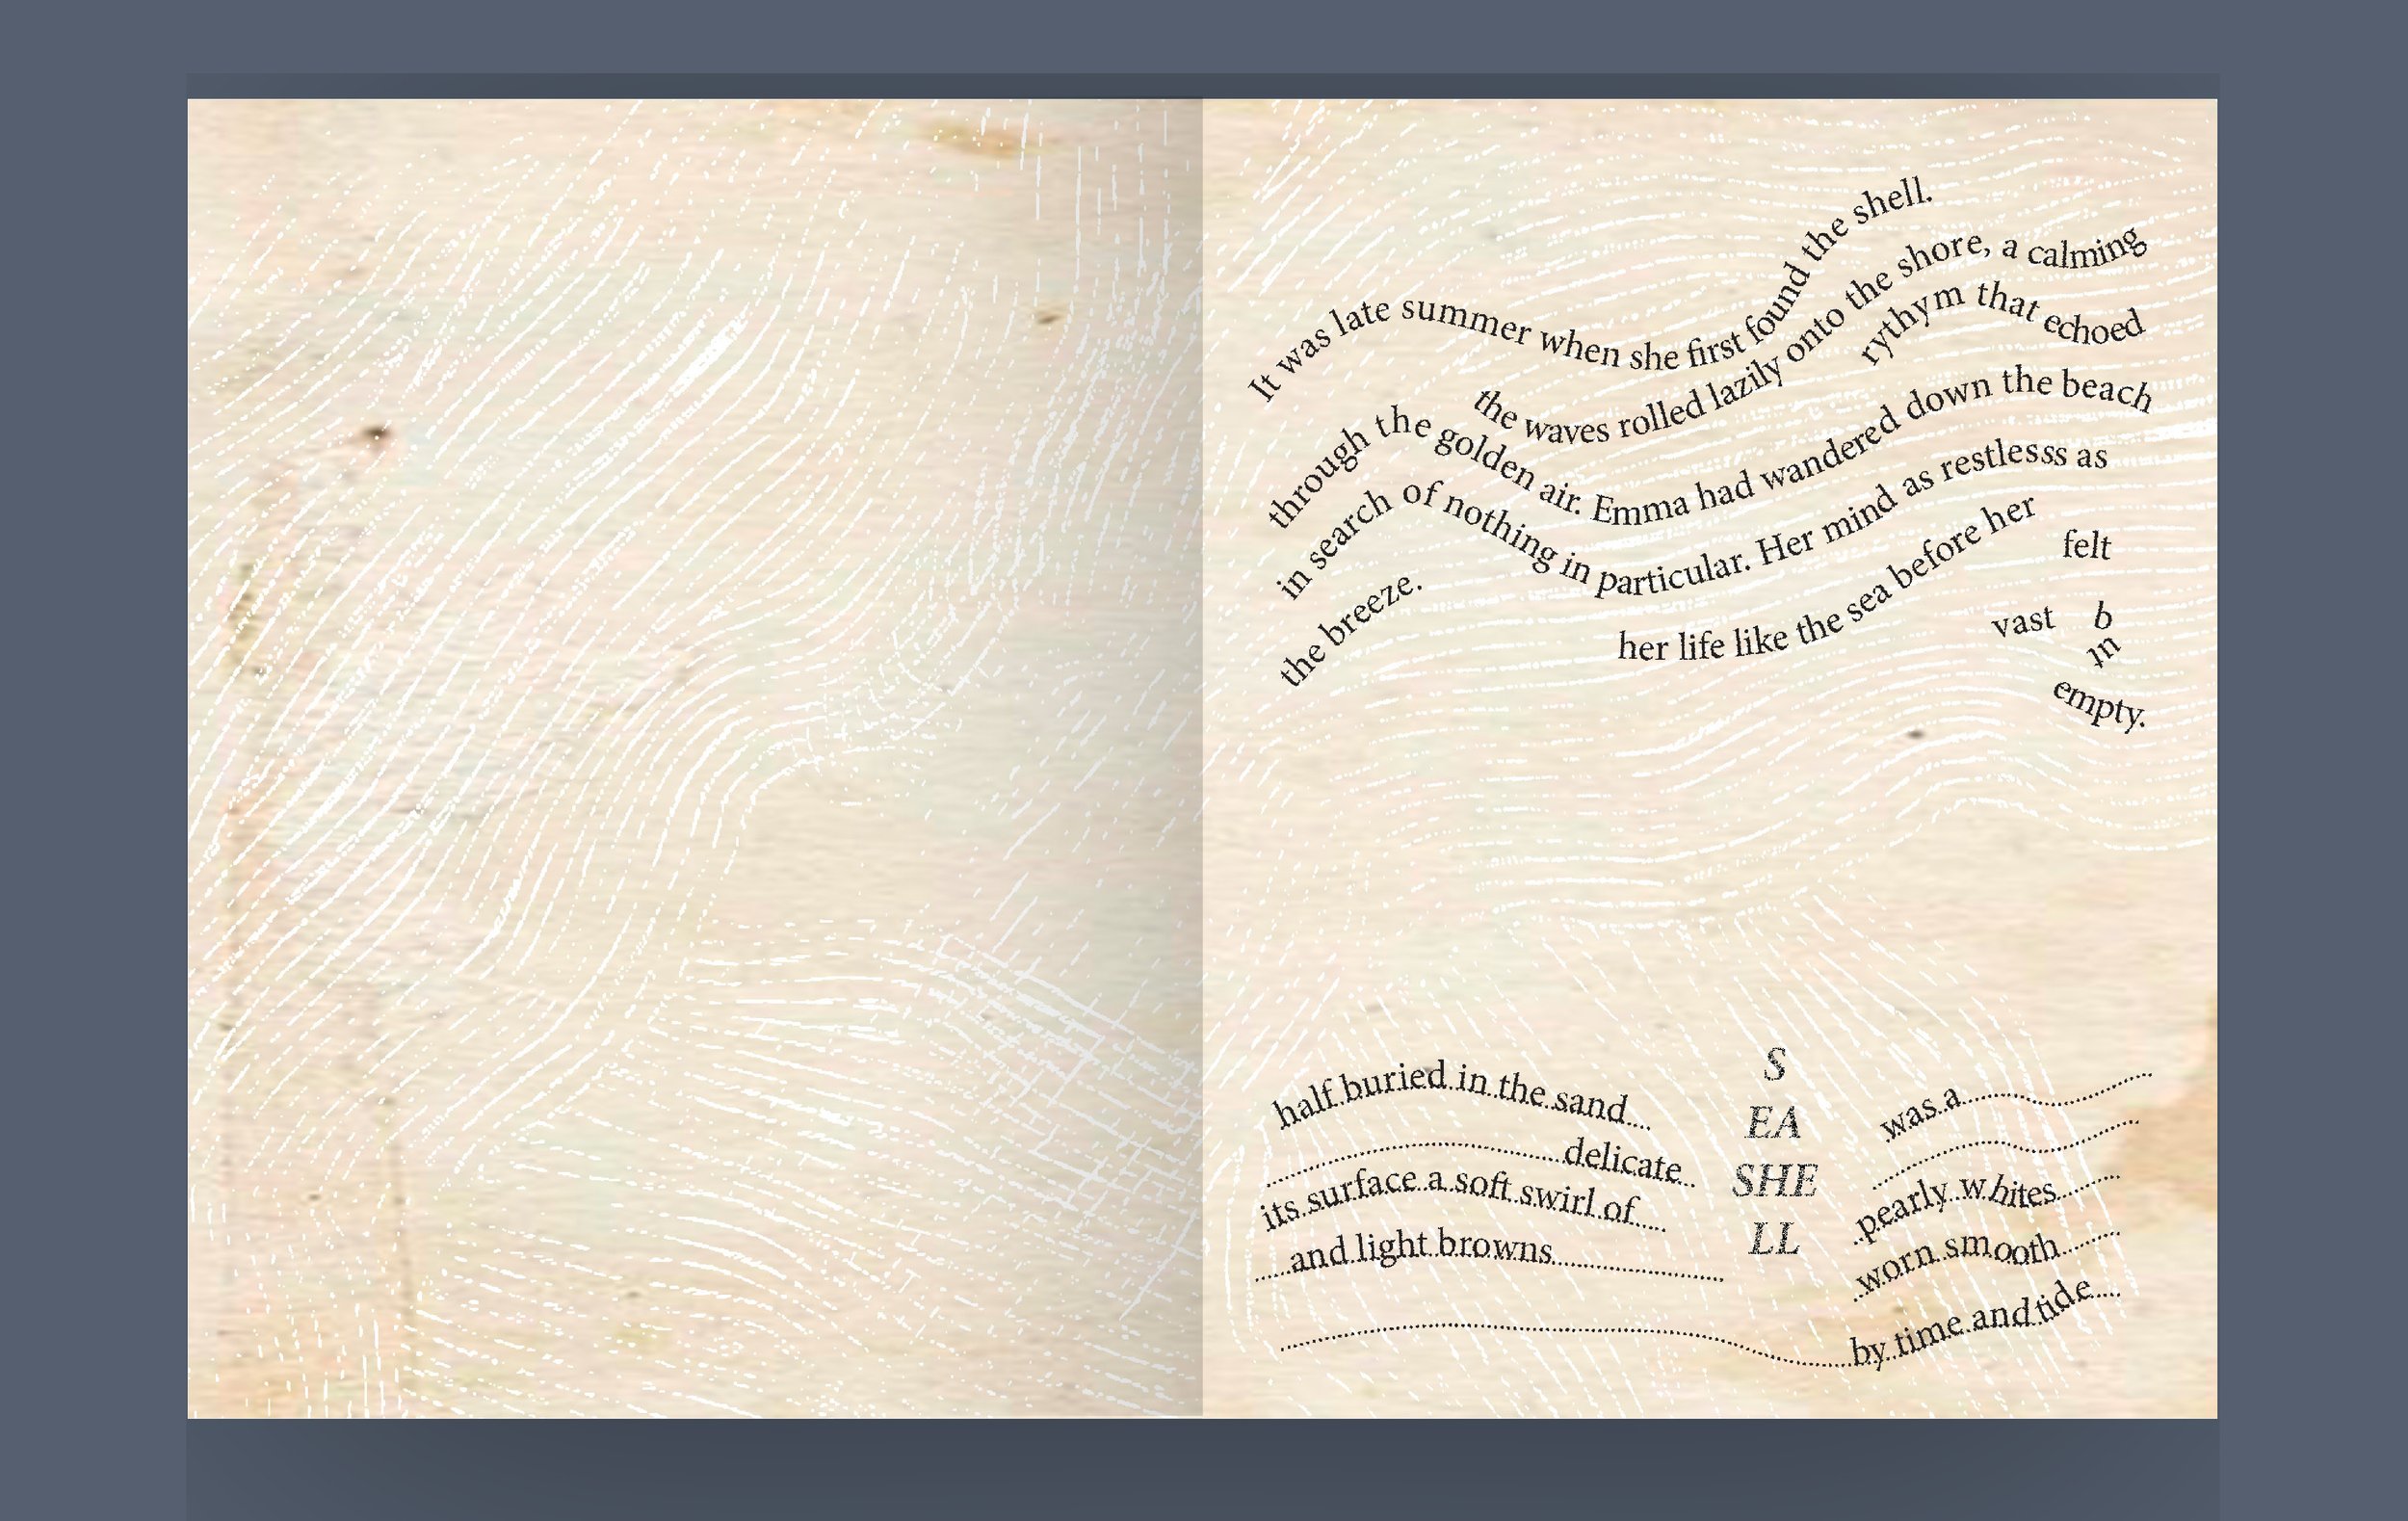 It was late summer when she first found the shell.
the waves rolled lazily onto the shore, a calming
rythym that echoed
through the golden air. Emma had wandered down the beach
in search of nothing in particular. Her mind as restlesss as
the breeze.
her life like the sea before her
felt
vast b
ut
empty.
half buried in the sand
was a
delicate
S
EA
SHE
LL
its surface a soft swirl of
pearly whites
and light browns
worn smooth
by time and tide